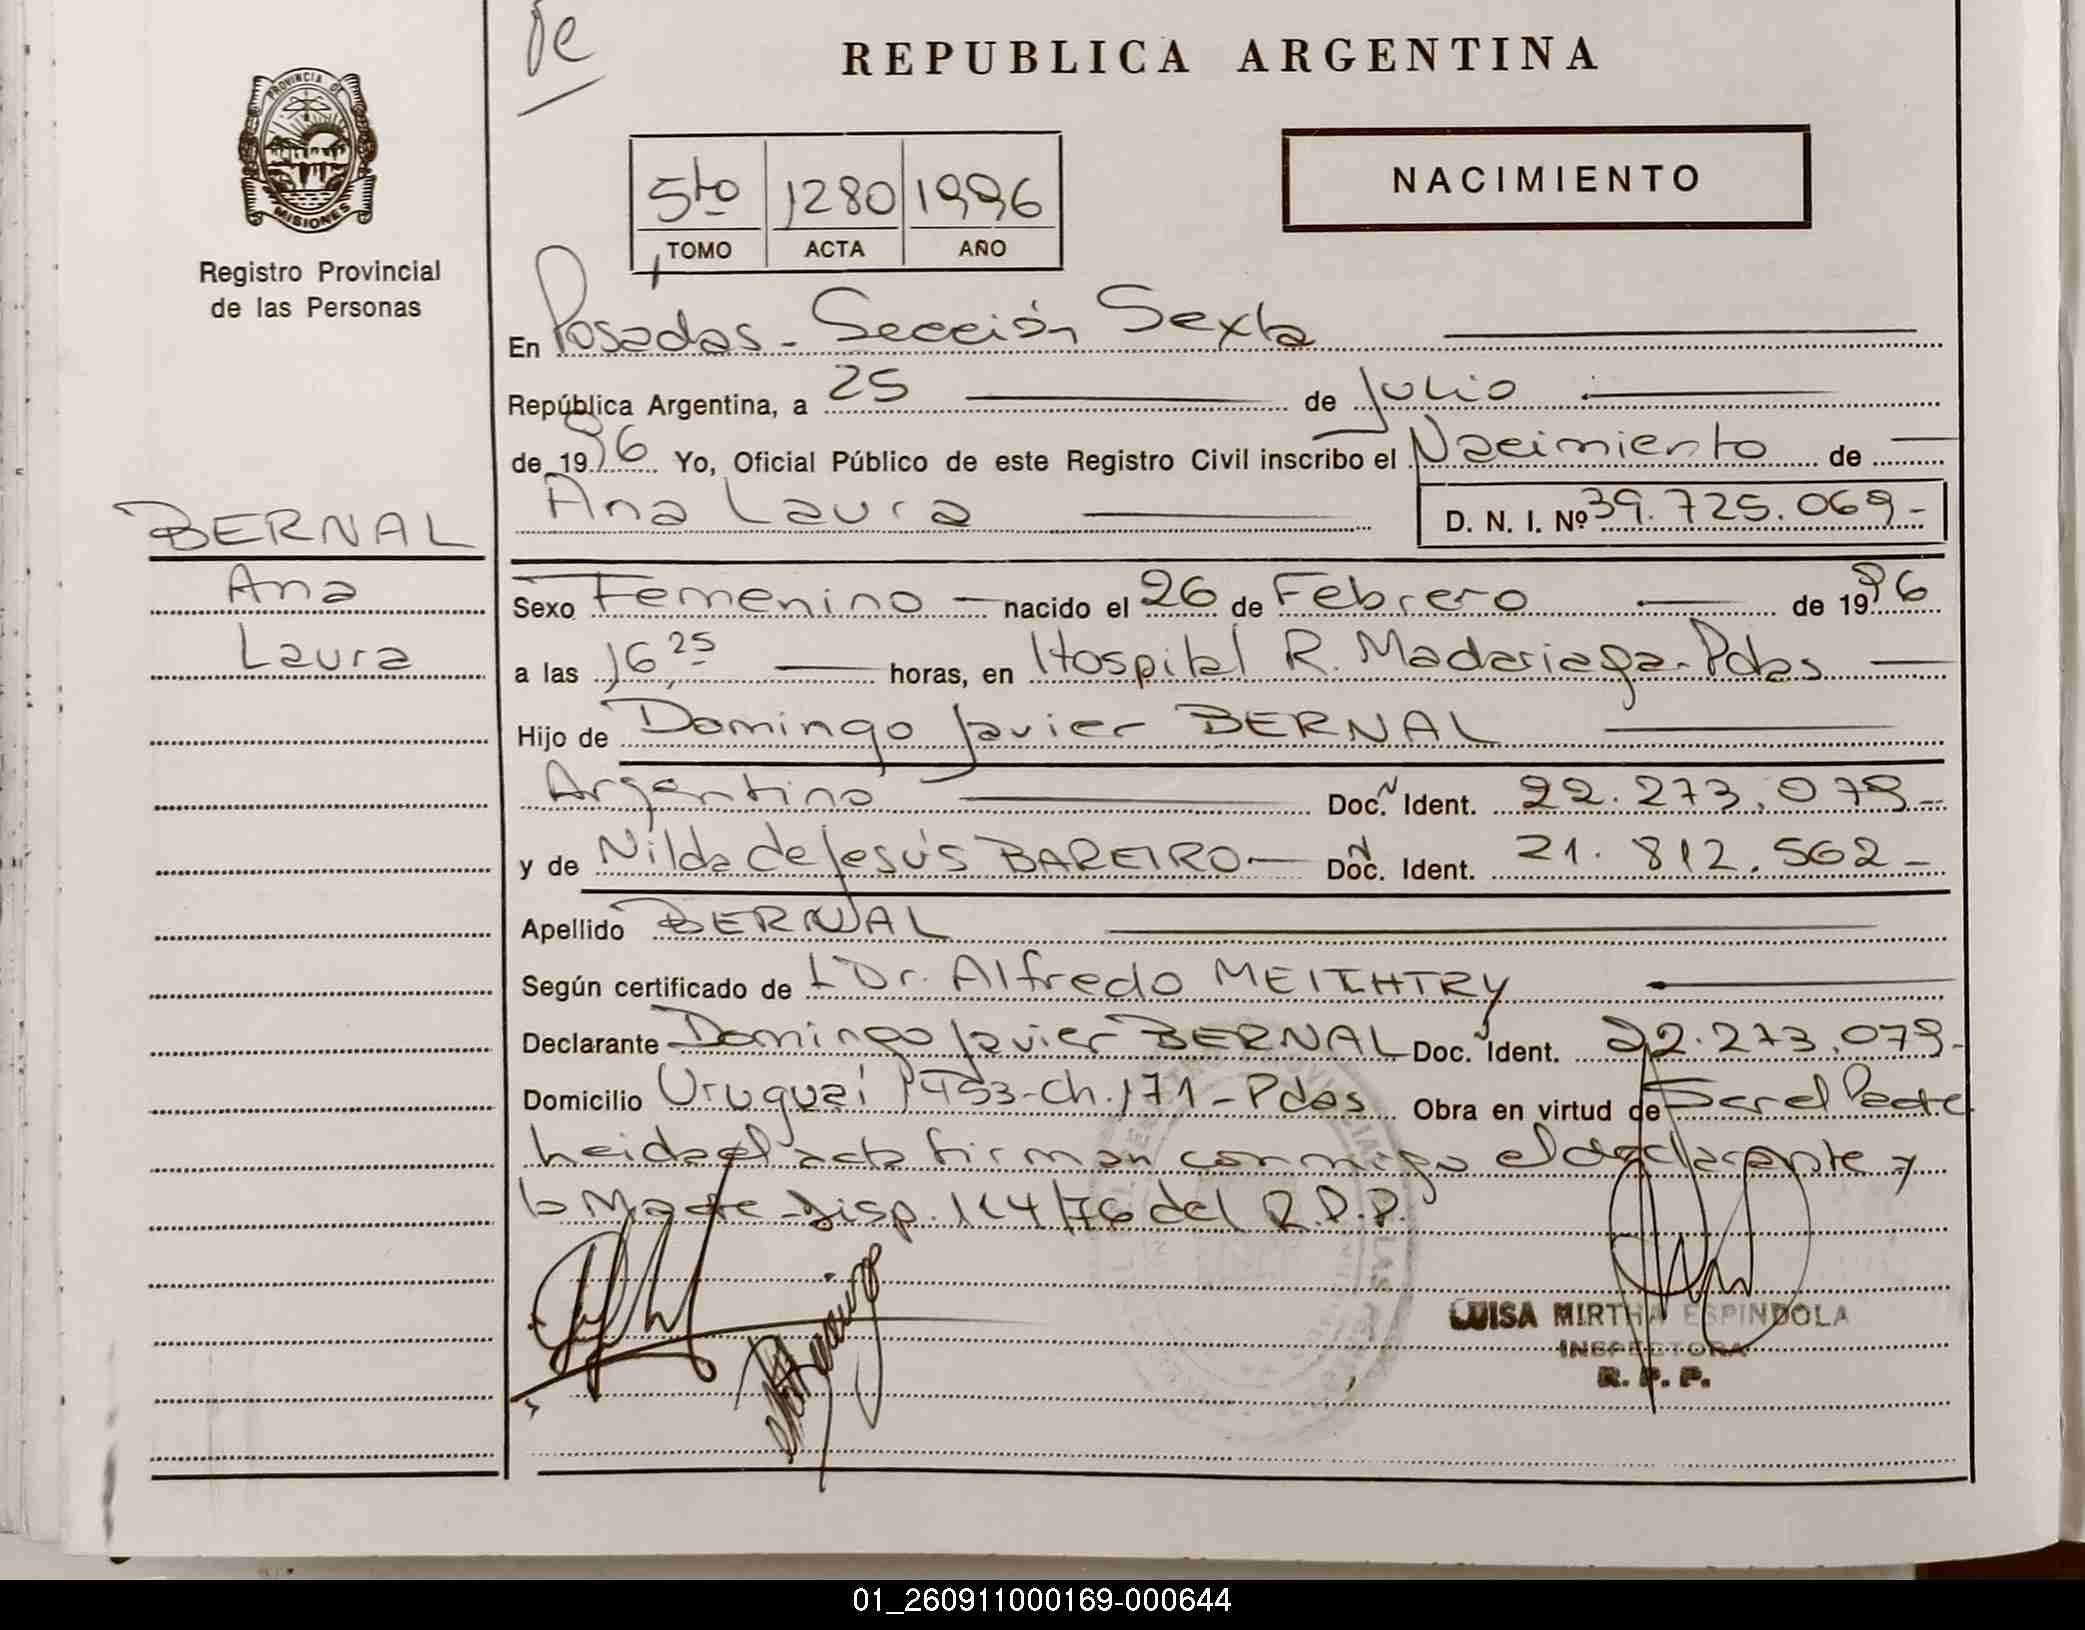 de
REPUBLICA ARGENTINA
PROVINCIA DE
MISIONES
Registro Provincial
de las Personas
5to 1280 1996
TOMO ACTA AÑO
NACIMIENTO
En Posadas - Sección Sexta
República Argentina, a 25 de Julio
de 1996 Yo, Oficial Público de este Registro Civil inscribo el Nacimiento de
Ana Laura
D. N. I. Nº 39.725.069-
BERNAL
Ana
Laura
Sexo Femenino nacido el 26 de Febrero de 1996
a las 16,25 horas, en Hospital R. Madariaga - Pdas
Hijo de Domingo Javier BERNAL
Argentino Doc. Ident. 22.273.079-
y de Nilda de Jesús BAREIRO Doc. Ident. 21.812.562-
Apellido BERNAL
Según certificado de Dr. Alfredo
Declarante Domingo Javier BERNAL Doc. Ident. 22.273.079-
Domicilio Uruguai 1453-Ch.171-Pdas Obra en virtud de Ser el Padre
Leida el acta firman conmigo el declarante y
la Madre - Disp. 114/76 del R.P.P.
LUISA MIRTHA ESPINDOLA
INSPECTORA
R. P. P.
01_260911000169-000644